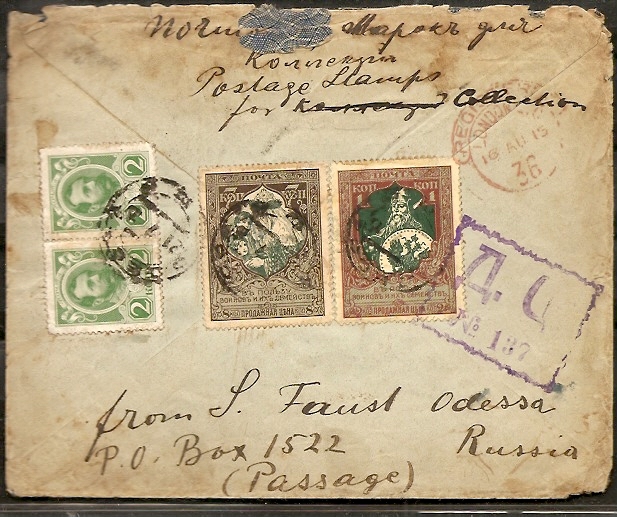 Марокъ для
Коллекцiи
Postage Stamps
for Collection
REG
LONDON
16 AU 15
36
2
2
ПОЧТА
7 КОП КОП 7
ВЪ ПОЛЬЗУ
ВОИНОВЪ И ИХЪ СЕМЕЙСТВЪ
8 ПРОДАЖНАЯ ЦѢНА 8
ПОЧТА
КОП КОП
1 1
ВЪ ПОЛЬЗУ
ВОИНОВЪ И ИХЪ СЕМЕЙСТВЪ
2 ПРОДАЖНАЯ ЦѢНА 2
Д. Ц
№ 137
from S. Faust Odessa
P.O. Box 1522 Russia
(Passage)